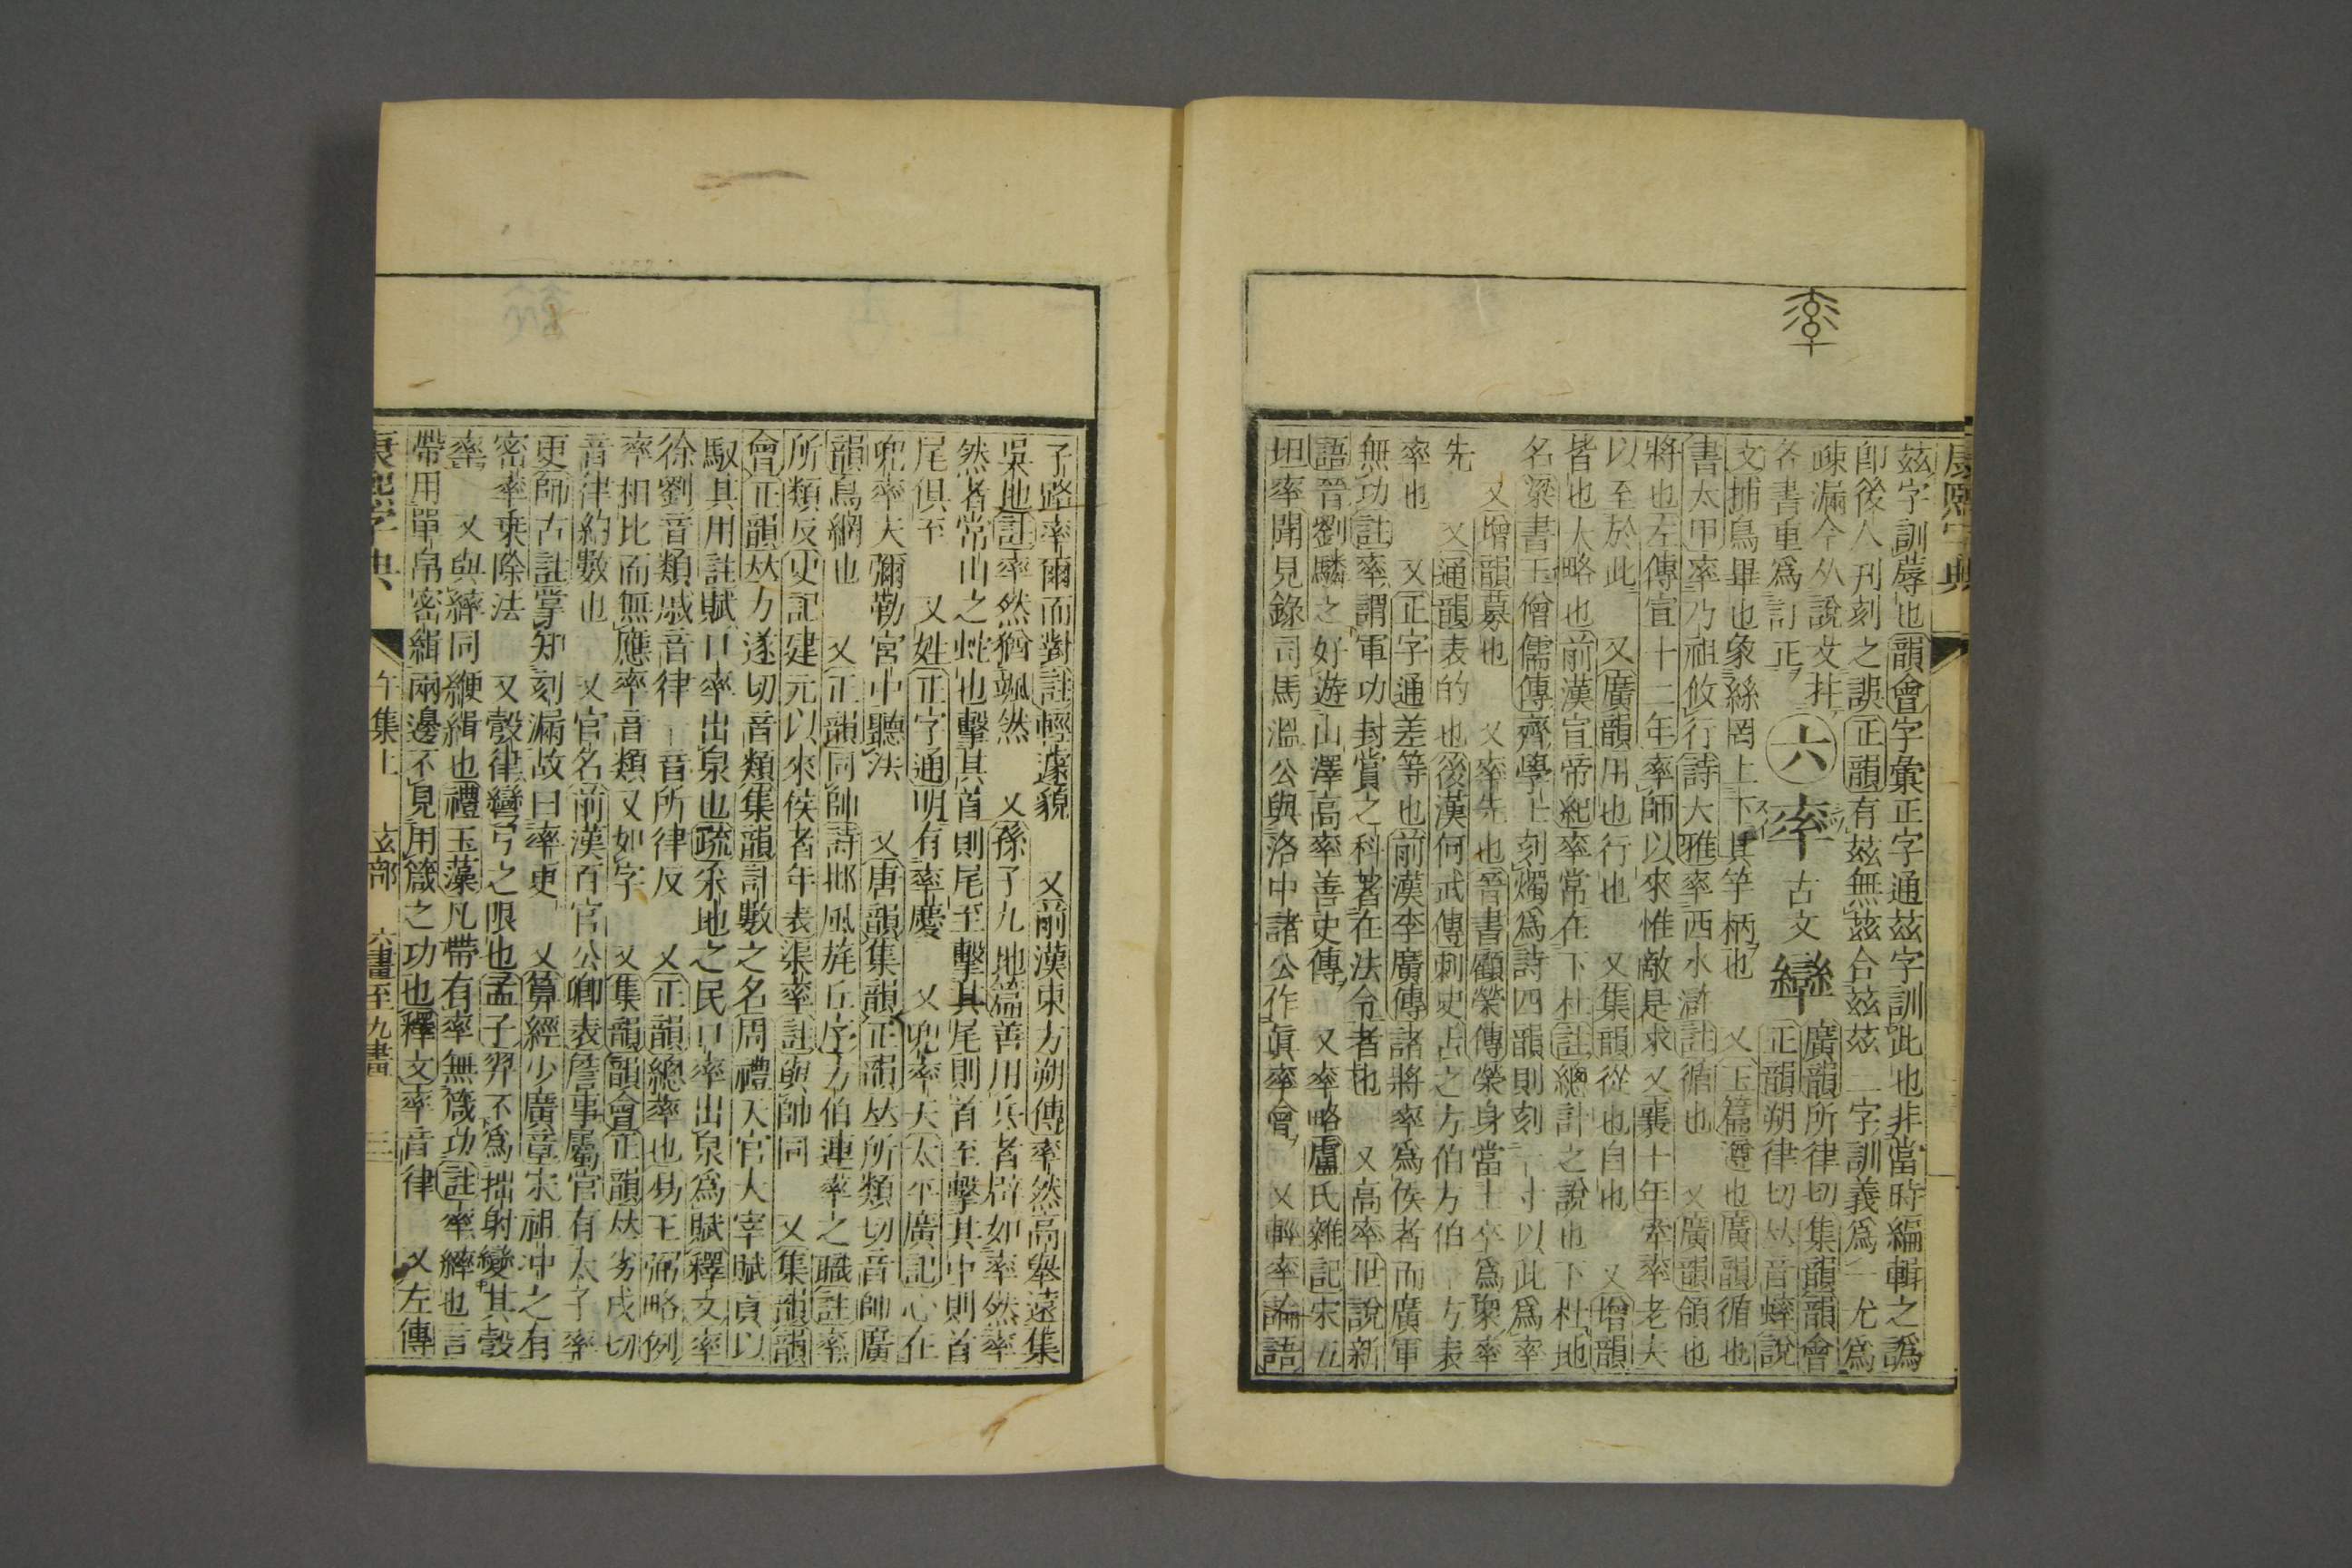 康熙字典
兹字訓蓐也韻會字彙正字通兹字訓此也非當時編輯之譌
卽後人刊刻之誤正韻有玆無茲合玆茲二字訓義爲一尤爲
疎漏今从說文幷
各書重爲訂正
六
率
古文
𤍠
廣韻所律切集韻韻會
正韻朔律切𠀤音蟀說
文捕鳥畢也象絲罔上下其竿柄也 又玉篇遵也廣韻循也
書太甲率乃祖攸行詩大雅率西水滸註循也 又廣韻領也
將也左傳宣十二年率師以來惟敵是求又襄十年牽率老夫
以至於此 又廣韻用也行也 又集韻從也自也 又增韻
皆也大略也前漢宣帝紀率常在下杜註總計之說也下杜地
名梁書王僧孺傳齊學士刻燭爲詩四韻則刻一寸以此爲率
又增韻募也 又率先也晉書顧榮傳榮身當士卒爲衆率
先 又通韻表的也後漢何武傳刺史古之方伯方伯一方表
率也 又正字通差等也前漢李廣傳諸將率爲侯者而廣軍
無功註率謂軍功封賞之科著在法令者也 又高率世說新
語晉劉驎之好遊山澤高率善史傳 又率略盧氏雜記宋五
坦率聞見錄司馬溫公與洛中諸公作眞率會 又輕率論語
子路率爾而對註輕遽貌 又前漢東方朔傳率然高舉遠集
吳地註率然猶颯然 又孫子九地篇善用兵者辟如率然率
然者常山之蛇也擊其首則尾至擊其尾則首至擊其中則首
尾俱至 又姓正字通明有率慶 又兜率天太平廣記心在
兜率天彌勒宮中聽法 又唐韻集韻正韻𠀤所類切音帥廣
韻鳥網也 又正韻同帥詩邶風旄丘序方伯連率之職註率
所類反史記建元以來侯者年表渠率註與帥同 又集韻韻
會正韻𠀤力遂切音類集韻計數之名周禮天官大宰賦貢以
馭其用註賦口率出泉也疏采地之民口率出泉爲賦釋文率
徐劉音類戚音律一音所律反 又正韻總率也易王弼略例
率相比而無應率音類又如字 又集韻韻會正韻𠀤劣戌切
音律約數也 又官名前漢百官公卿表詹事屬官有太子率
更師古註掌知刻漏故曰率更 又算經少廣章宋祖冲之有
密率乗除法 又彀律彎弓之限也孟子羿不爲拙射變其彀
率 又與繂同緶緝也禮玉藻凡帶有率無箴功註率繂也言
帶用單帛密緝兩邊不見用箴之功也釋文率音律 又左傳
康熙字典 午集上 玄部 六畫至九畫 三